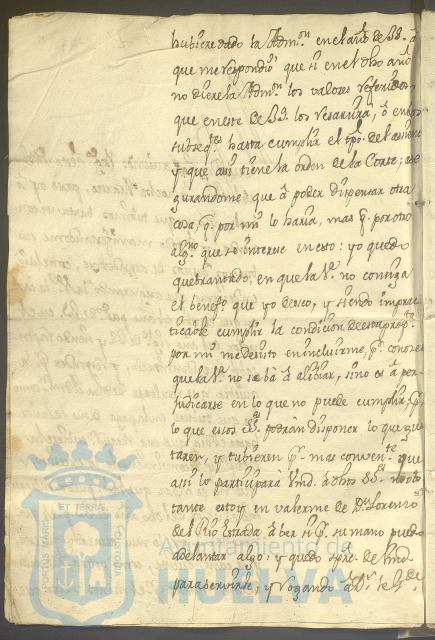 hubiere dado la Adm.on en el año de 88. á
que me respondió que si en el dho año
no diere la Adm.on los valores referidos
que en este de 89. los resarzirá, ó en los
subseq.tes hasta cumplir el tpo. del asiento
y que assi tiene la orden de la Corte; ase
gurandome que á poder dispensar otra
cosa, q.e por mi lo haria, mas q.e por otro
alg.no que se interese en esto: yo quedo
quebrantado, en que la V.a no consiga
el benef.o que yo deseo, y siendo imprac
ticable cumplir la condicion de esta prop.on
por mi me desisto en incluirme, p.r conozer
que la V.a no se bá á alibiar, sino es á per
judicarse en lo que no puede cumplir, q.e
lo que essos SS.es podrán disponer lo que gus
taren, y tubieren p.r mas conven.te que
assi lo participará Vmd. á dhos SS.es no obs
tante estoy en valerme de D.n Lorenzo
del Rio Estrada á ber si p.r su mano puedo
adelantar algo: y quedo spre. de Vmd.
para servirle, y rogando á D.s le g.de
PORTUS MARIS
ET TERRÆ
CUSTODIA
Ayuntamiento de
HUELVA